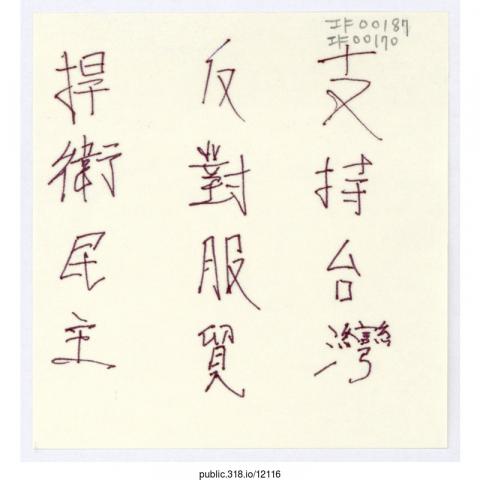 工作00187
工作00170
支持台灣
反對服貿
捍衛民主
public.318.io/12116